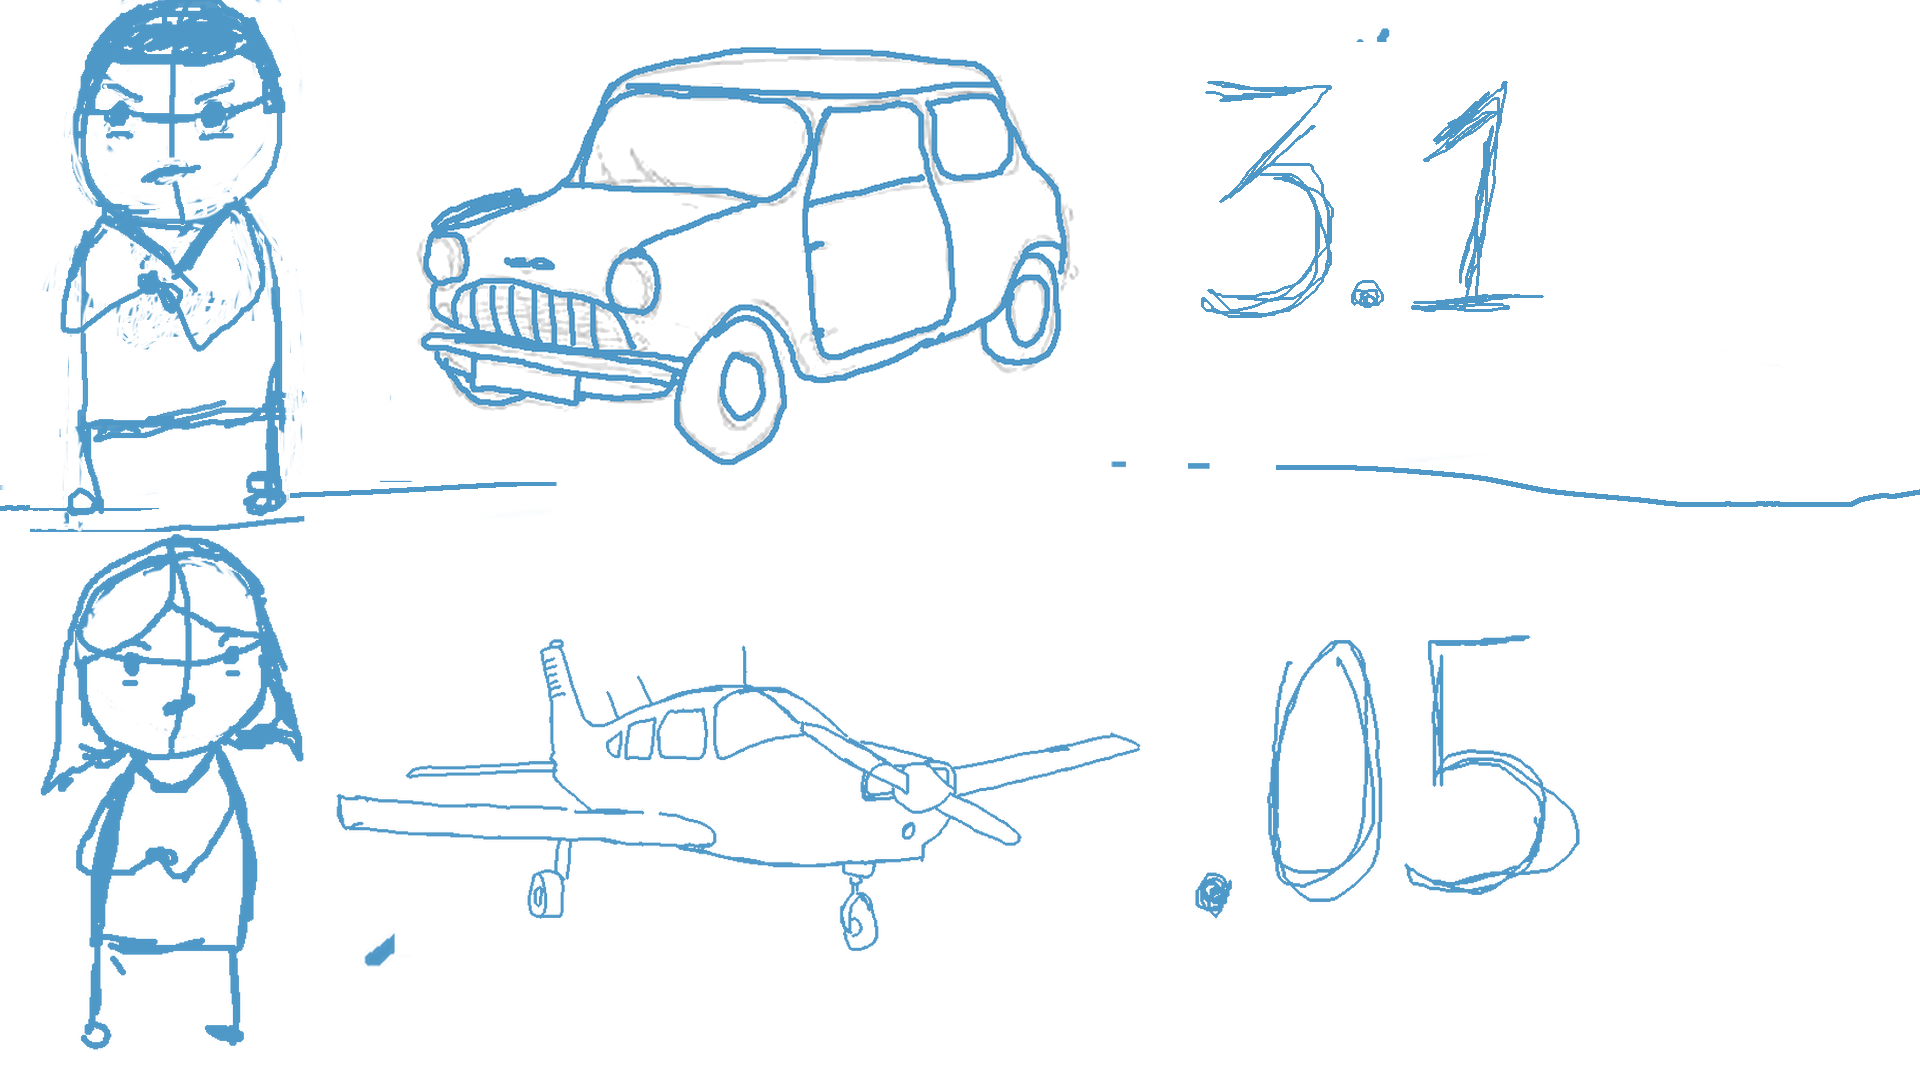 3.1
.05